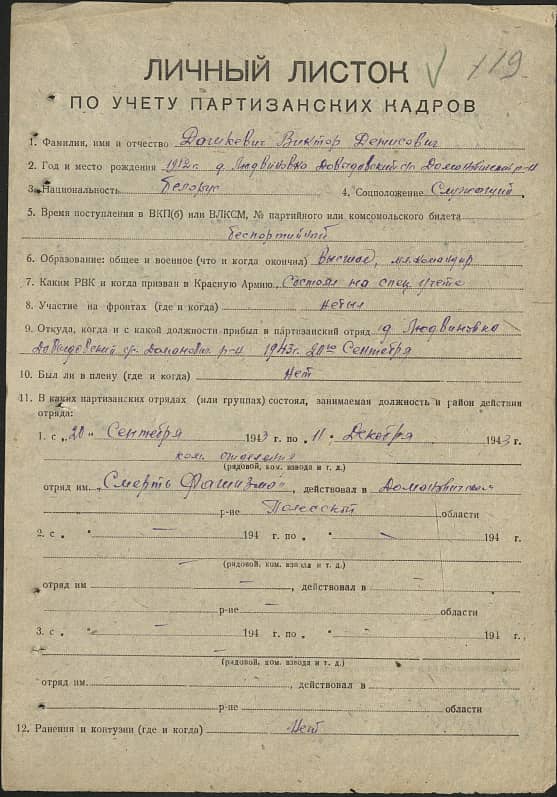 ЛИЧНЫЙ ЛИСТОК 119
ПО УЧЕТУ ПАРТИЗАНСКИХ КАДРОВ
1. Фамилия, имя и отчество Дашкевич Виктор Денисович
2. Год и место рождения 1912 г. д. Людвиновка Давыдовский с/с
3. Национальность белорус 4. Соцположение Служащий
5. Время поступления в ВКП(б) или ВЛКСМ, № партийного или комсомольского билета
беспортийной
6. Образование: общее и военное (что и когда окончил) Высшее, мл. Командир
7. Каким РВК и когда призван в Красную Армию Состоял на спец учете
8. Участие на фронтах (где и когда) Небыл
9. Откуда, когда и с какой должности прибыл в партизанский отряд д Людвиновка
Давыдовский ср. Доманович. р-н 1943 г. 20го Сентября
10. Был ли в плену (где и когда) Нет
11. В каких партизанских отрядах (или группах) состоял, занимаемая должность и район действия
отряда:
1. с „20" Сентября 1943 г. по „11" Декабря 1943 г.
ком. отделения
(рядовой, ком. взвода и т. д.)
отряд им. „Смерть Фашизма", действовал в
р-не Полесской области
2. с „ " — 194 г. по „ " — 194 г.
—
(рядовой, ком. взвода и т. д.)
отряд им — , действовал в
р-не — области
3. с „ " — 194 г. по „ " — 194 г.
—
(рядовой, ком. взвода и т. д.)
отряд им. — , действовал в
р-не области
12. Ранения и контузии (где и когда) Нет